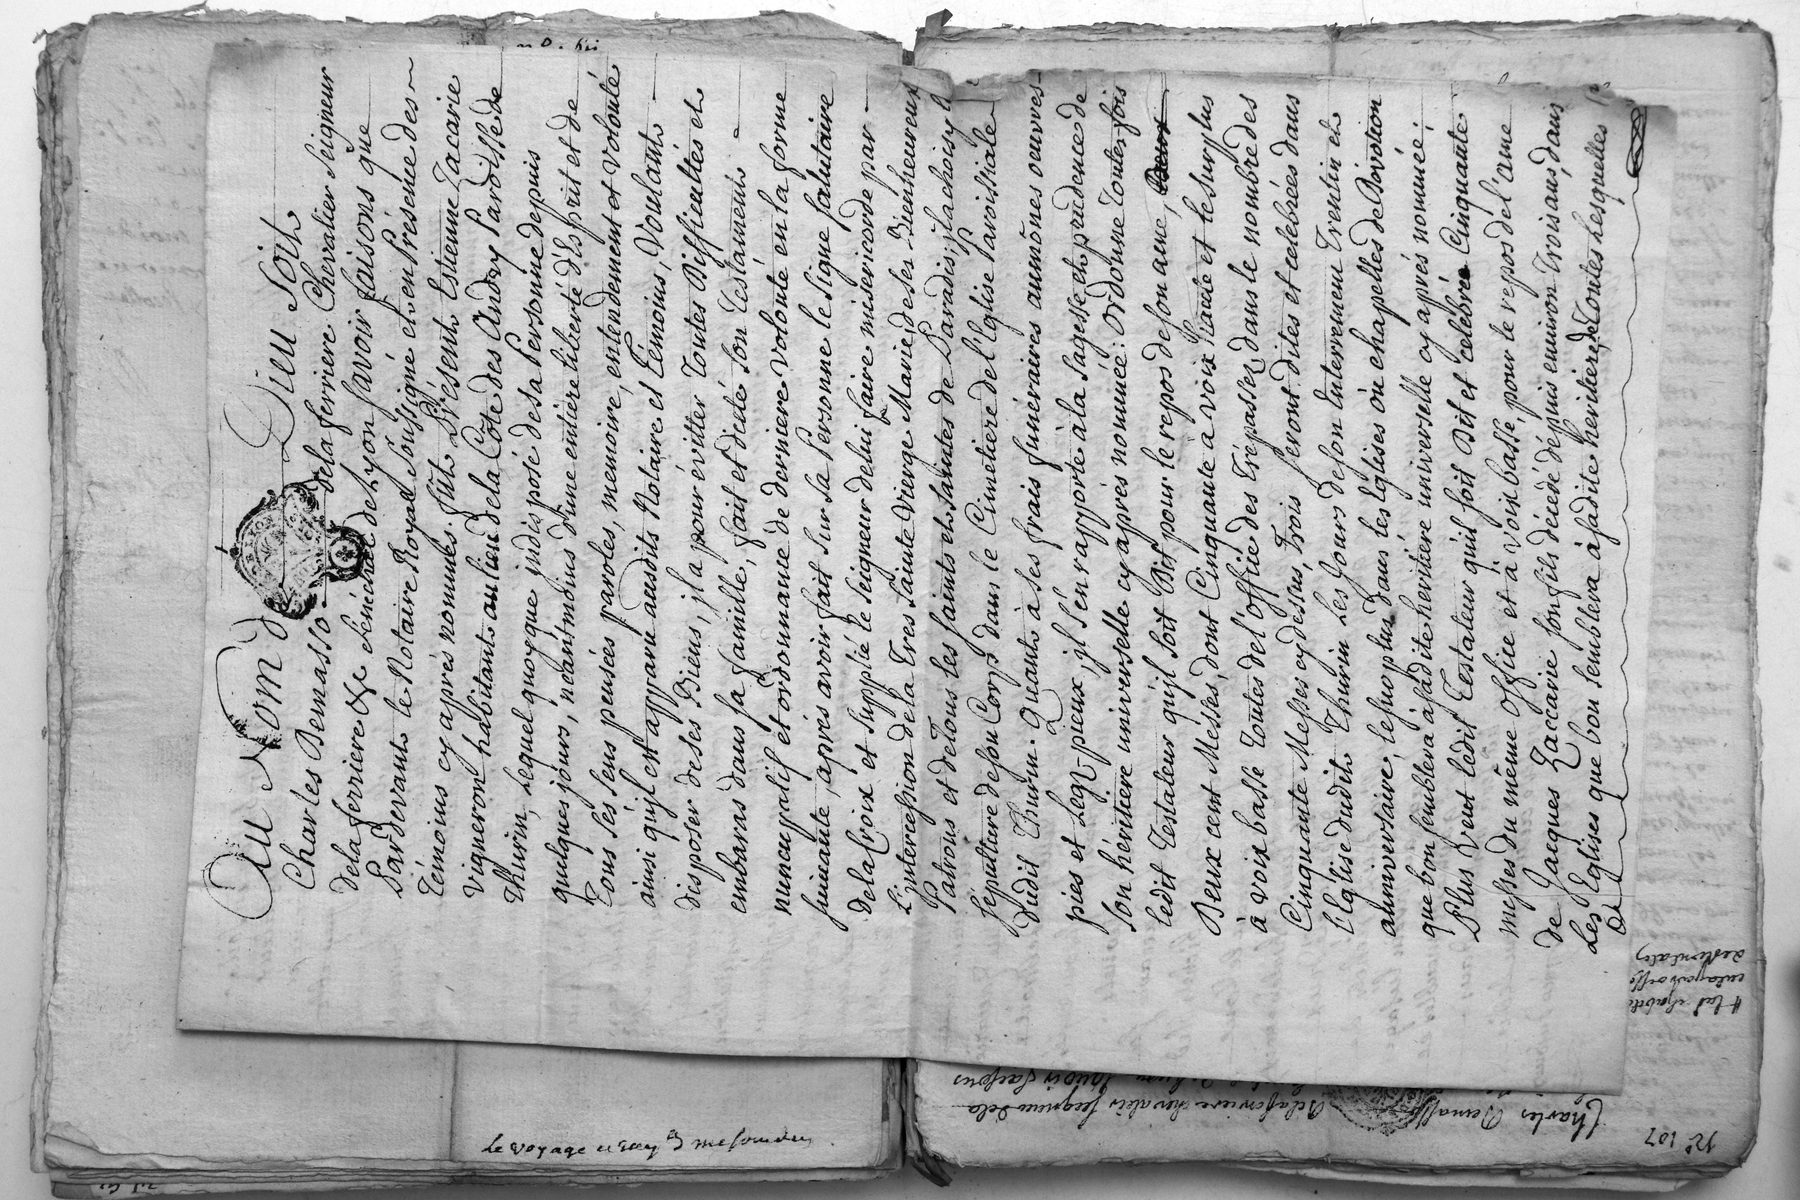 Au Nom de Dieu soit
Charles Demasso de la ferriere Chevalier Seigneur
de la ferriere &c sénéchal de Lyon savoir faisons que
Pardevant le Notaire Royal soussigné et en Présence des
Témoins cy après nommés. fut Présent Estienne Zaccarie
vigneron habitant au lieu de la Côte des Andrey Paroisse de
Thurin, Lequel quoyque indisposé de sa Personne depuis
quelques jours, néantmoins d'une entiere liberté d'ésprit et de
Tous sés sens pensées paroles, memoire, entendement et volonté
ainsi qu'yl est apparu ausdits Notaire et Témoins, Voulant
disposer de ses Biens, jl a pour évitter Toutes Difficultés et
embaras dans sa famille, fait et dicté son Testament
nuncupatif et ordonnance de derniere volonté en la forme
suivante, aprés avoir fait sur sa Personne le signe salutaire
de la Croix et supplié le seigneur de lui faire misericorde par
L'intercession de la Tres sainte Vierge Marie de ses Bienheureux
Patrons et de Tous les saints et saintes de Paradis, jl a choisy la
sépulture de son Corps dans le Cimetiere de l'Eglise Paroissiale
dudit Thurin. Quant à ses frais funéraires aumônes oeuvres
pies et Legs pieux, jl s'en rapporte à la sagesse et prudence de
son héritiere universelle cy aprés nommée: ordonne Toutes fois
ledit Testateur qu'yl soit Dit pour le repos de son ame,
Deux cent Messes, dont Cinquante à voix haute et le surplus
à voix basse Toutes de l'office des Trépassez, dans le nombre des
Cinquante Messes cy dessus, Trois seront dites et celebrées dans
l'Eglise dudit Thurin Les jours de son Enterrement Trentin et
anniversaire, le surplus dans les Eglises ou chapelles de Dévotion
que bon semblera à sa dite heritiere universelle cy aprés nommée;
Plus Veut ledit Testateur qu'il soit Dit et celebré Cinquante
messes du même office et à voix basse, pour le repos de l'ame
de Jacques Zaccarie son fils décédé dépuis environ Trois ans, dans
Les Eglises que bon semblera à sa dite heritiere, de Toutes lesquelles
Le voyage
N° 107
Charles Demasso De la ferriere chevalier seigneur de la